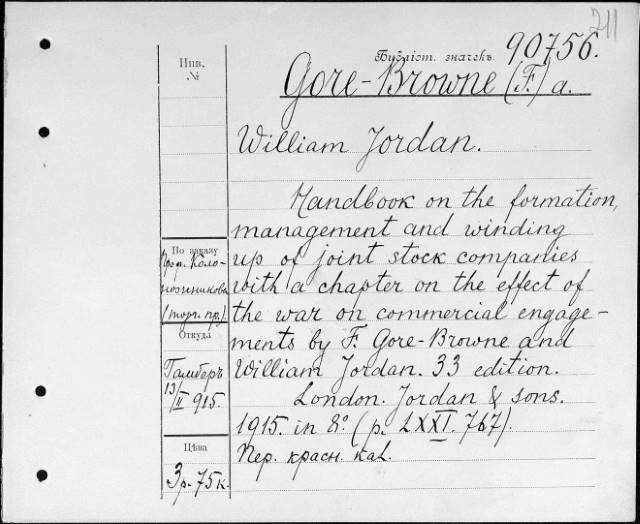 211
Библіот. значекъ 90756.
Инв.
№
Gore-Browne (F.) a.
William Jordan.
Handbook on the formation,
management and winding
up of joint stock companies
with a chapter on the effect of
the war on commercial engage-
ments by F. Gore-Browne and
William Jordan. 33 edition.
London. Jordan & sons.
1915. in 8º (p. LXXI. 767).
Пер. красн. кал.
По заказу
Проф. Коло-
(торг. пр.).
Откуда
13/II 915.
Цѣна
3 р. 75 к.